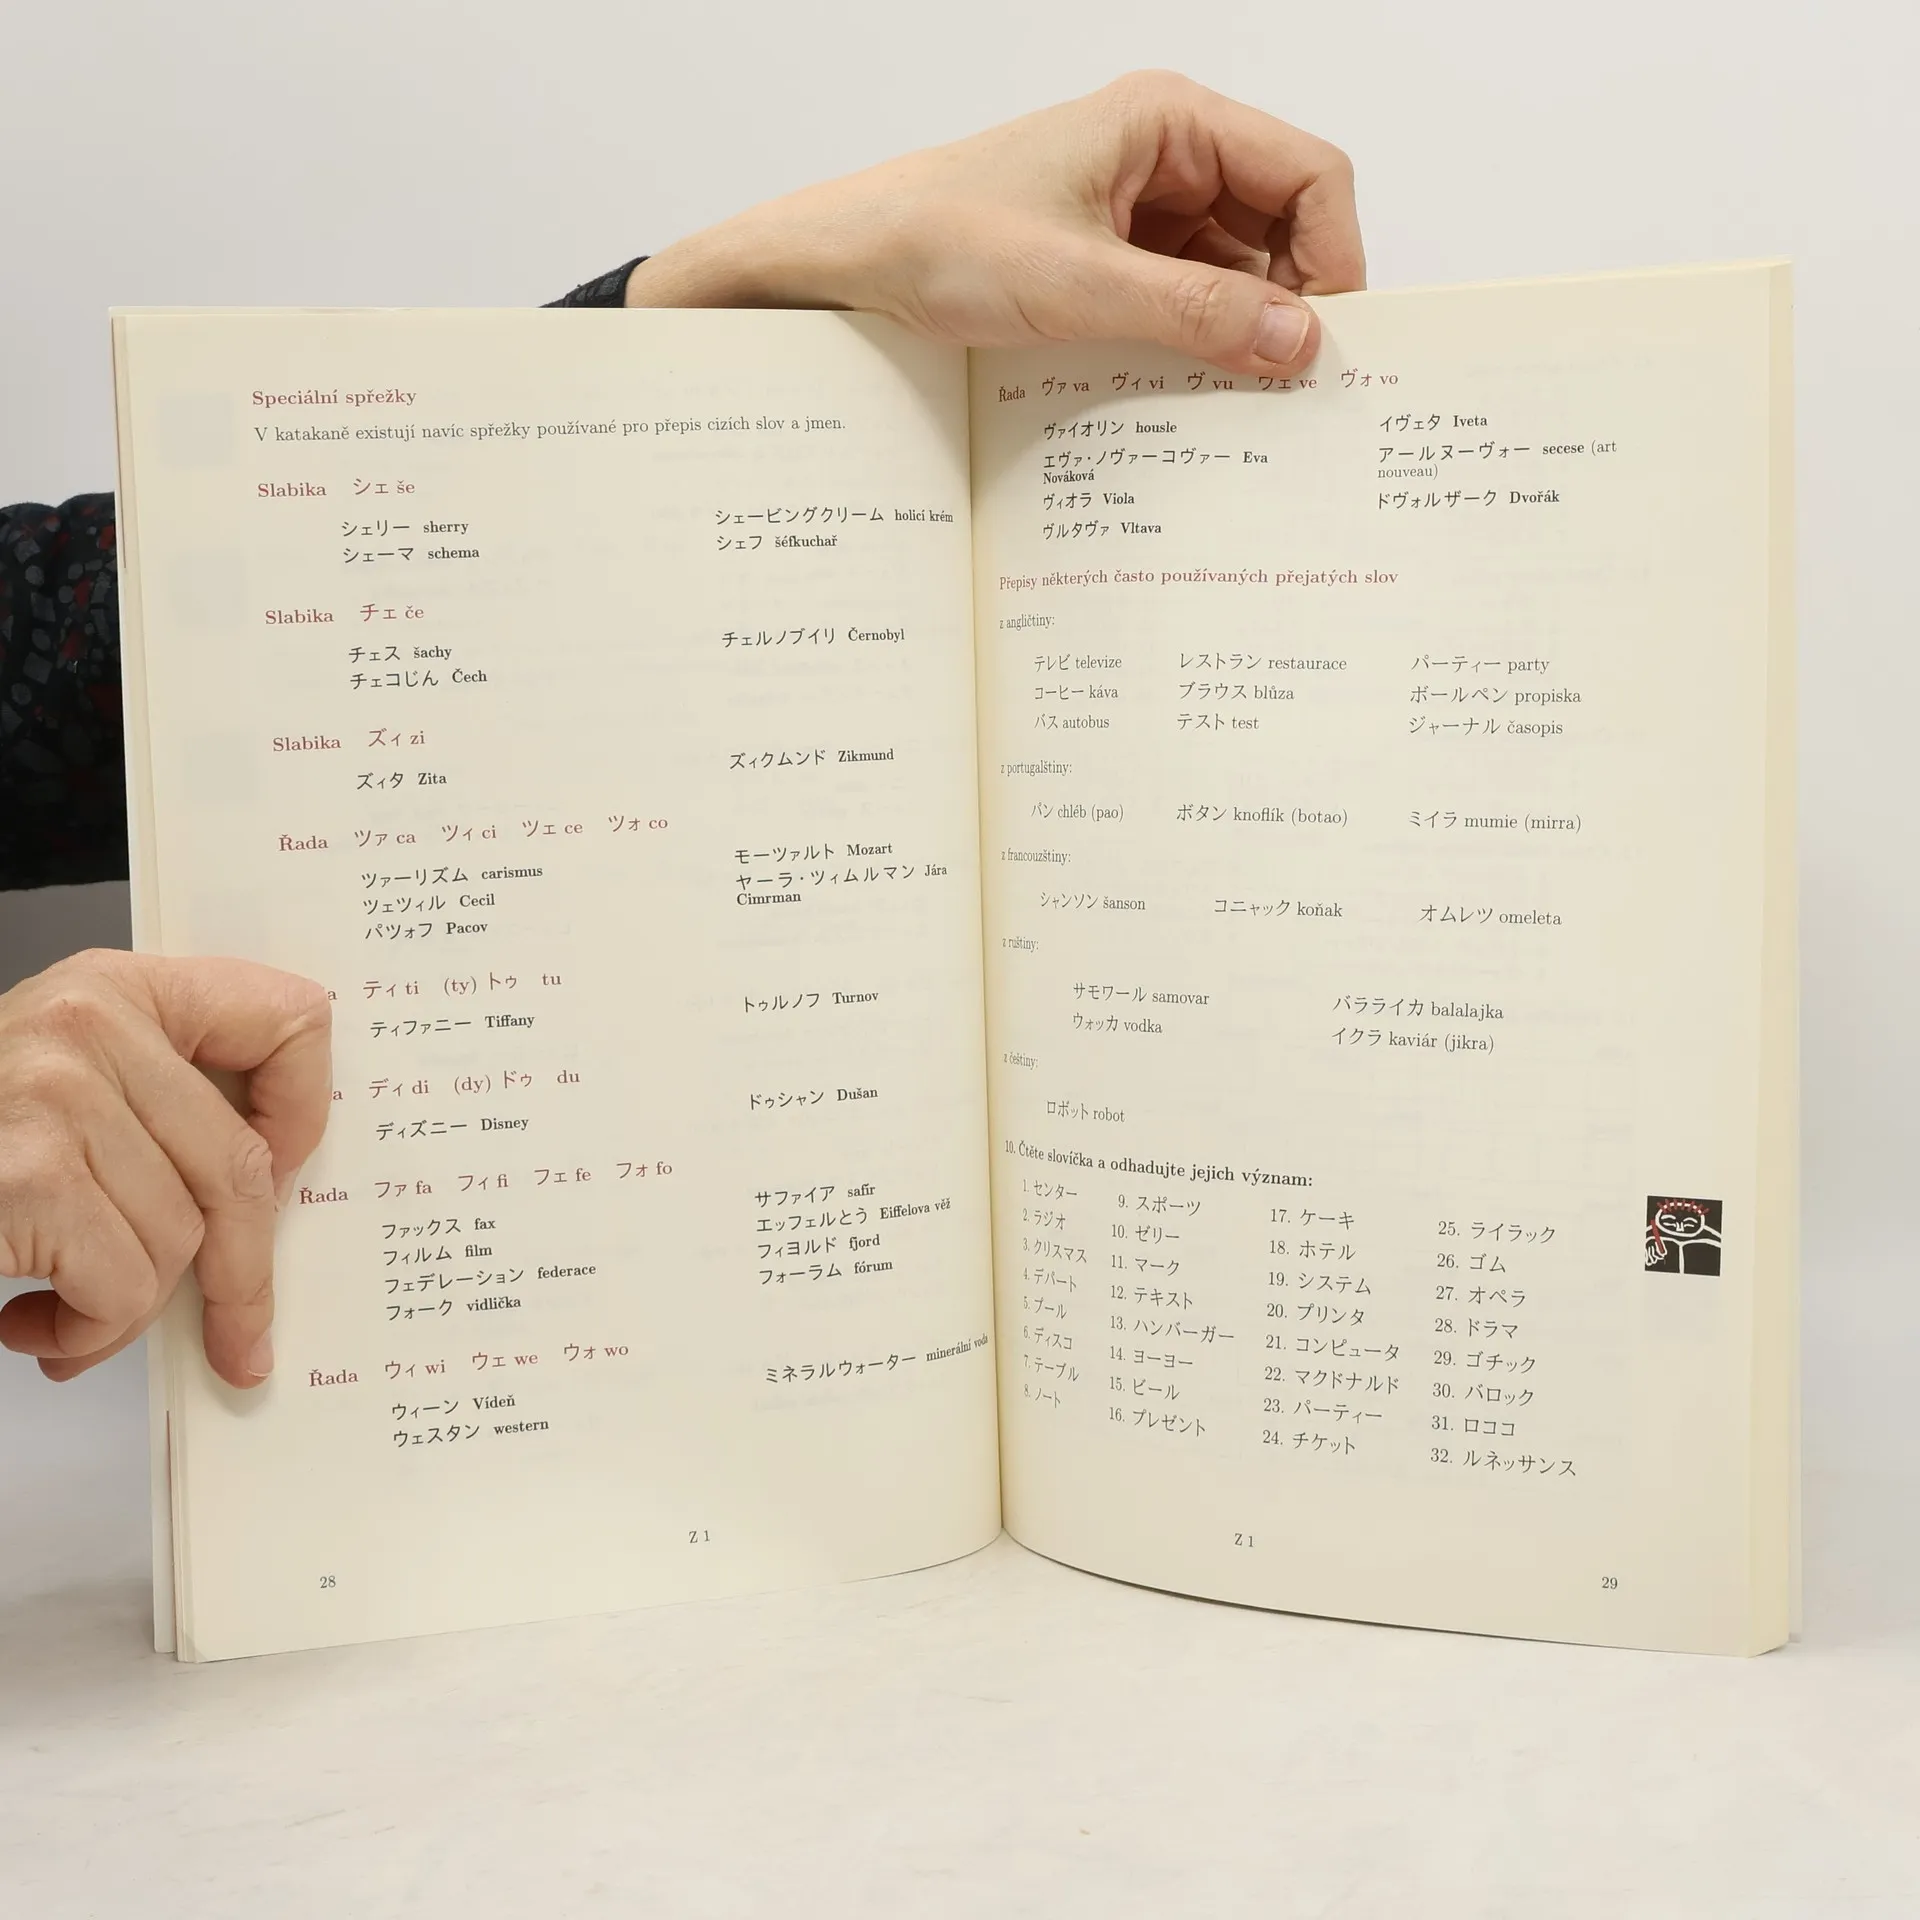 Speciální spřežky
V katakaně existují navíc spřežky používané pro přepis cizích slov a jmen.
Slabika シェ še
シェリー sherry
シェーマ schema
シェービングクリーム holicí krém
シェフ šéfkuchař
Slabika チェ če
チェス šachy
チェコじん Čech
チェルノブイリ Černobyl
Slabika ズィ zi
ズィタ Zita
ズィクムンド Zikmund
Řada ツァ ca ツィ ci ツェ ce ツォ co
ツァーリズム carismus
ツェツィル Cecil
パツォフ Pacov
モーツァルト Mozart
ヤーラ・ツィムルマン Jára
Cimrman
a ティ ti (ty) トゥ tu
ティファニー Tiffany
トゥルノフ Turnov
a ディ di (dy) ドゥ du
ディズニー Disney
ドゥシャン Dušan
Řada ファ fa フィ fi フェ fe フォ fo
ファックス fax
フィルム film
フェデレーション federace
フォーク vidlička
サファイア safír
エッフェルとう Eiffelova věž
フィヨルド fjord
フォーラム fórum
Řada ウィ wi ウェ we ウォ wo
ウィーン Vídeň
ウェスタン western
ミネラルウォーター minerální voda
Z 1
28
Řada ヴァ va ヴィ vi ヴ vu ヴェ ve ヴォ vo
ヴァイオリン housle
エヴァ・ノヴァーコヴァー Eva
Nováková
ヴィオラ Viola
ヴルタヴァ Vltava
イヴェタ Iveta
アールヌーヴォー secese (art
nouveau)
ドヴォルザーク Dvořák
Přepisy některých často používaných přejatých slov
z angličtiny:
テレビ televize レストラン restaurace パーティー party
コーヒー káva ブラウス blůza ボールペン propiska
バス autobus テスト test ジャーナル časopis
z portugalštiny:
パン chléb (pao) ボタン knoflík (botao) ミイラ mumie (mirra)
z francouzštiny:
シャンソン šanson コニャック koňak オムレツ omeleta
z ruštiny:
サモワール samovar バラライカ balalajka
ウォッカ vodka イクラ kaviár (jikra)
z češtiny:
ロボット robot
10. Čtěte slovíčka a odhadujte jejich význam:
1. センター
2. ラジオ
3. クリスマス
4. デパート
5. プール
6. ディスコ
7. テーブル
8. ノート
9. スポーツ
10. ゼリー
11. マーク
12. テキスト
13. ハンバーガー
14. ヨーヨー
15. ビール
16. プレゼント
17. ケーキ
18. ホテル
19. システム
20. プリンタ
21. コンピュータ
22. マクドナルド
23. パーティー
24. チケット
25. ライラック
26. ゴム
27. オペラ
28. ドラマ
29. ゴチック
30. バロック
31. ロココ
32. ルネッサンス
Z 1
29